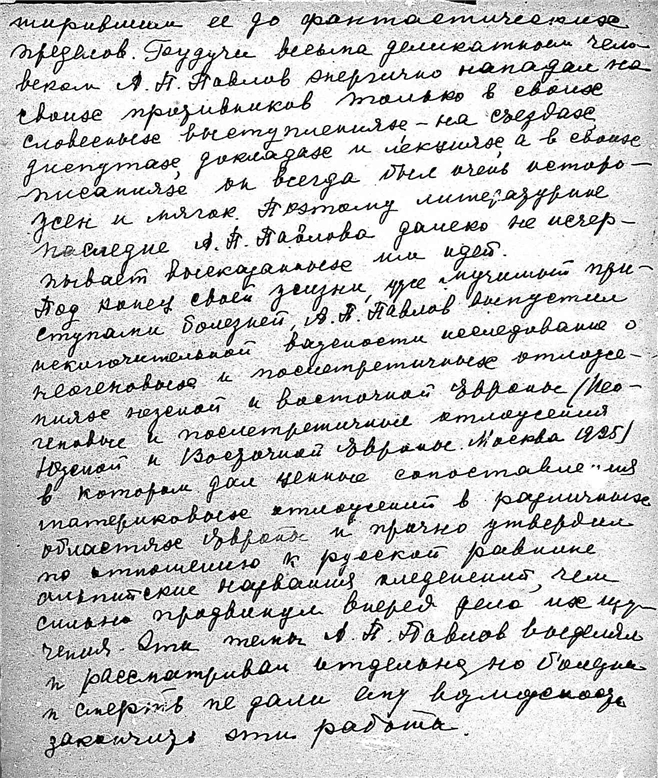 ширившим ее до фантастических
пределов. Будучи весьма деликатным чело
веком А.П. Павлов энергично нападал на
своих противников только в своих
словесных выступлениях – на съездах,
диспутах докладах и лекциях, а в своих
писаниях он всегда был очень осторо-
жен и мягок. Поэтому литературное
наследие А.П. Павлова далеко не исчер-
пывает высказанных им идей.
Под конец своей жизни, уже мучимый при-
ступами болезней, А.П. Павлов выпустил
исключительной важности исследование о
неогеновых и послетретичных отложе-
ниях южной и восточной Европы (Нео-
геновые и послетретичные отложения
Южной и Восточной Европы. Москва 1925)
в котором дал ценные сопоставления
материковых отложений в различных
областях Европы и прочно утвердил
по отношению к русской равнине
альпийские названия оледенений, чем
сильно продвинул вперед дело их изу-
чения. Эти темы А.П. Павлов выделял
и рассматривал отдельно, но болезнь
и смерть не дали ему возможность
закончить эти работы.